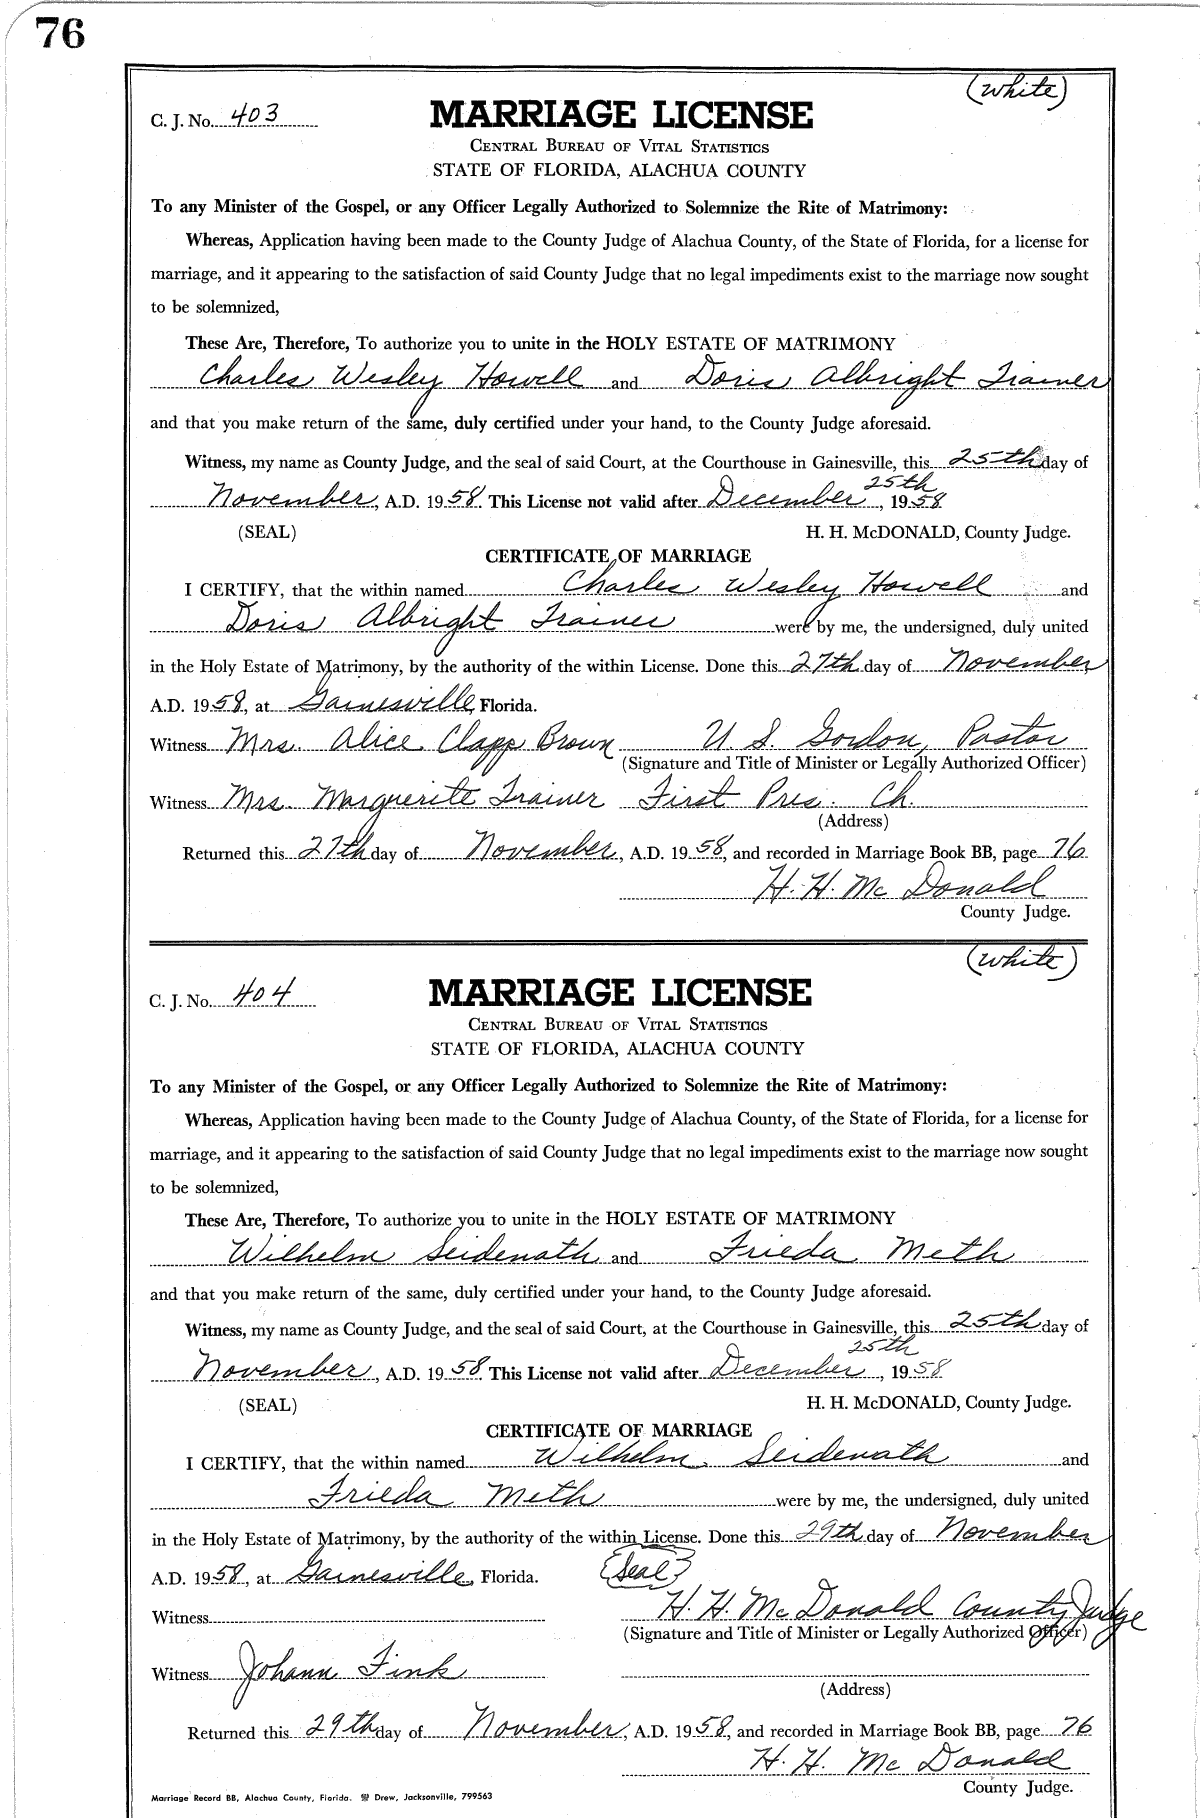 76
(white)
C. J. No. 403
MARRIAGE LICENSE
CENTRAL BUREAU OF VITAL STATISTICS
STATE OF FLORIDA, ALACHUA COUNTY
To any Minister of the Gospel, or any Officer Legally Authorized to Solemnize the Rite of Matrimony:
Whereas, Application having been made to the County Judge of Alachua County, of the State of Florida, for a license for
marriage, and it appearing to the satisfaction of said County Judge that no legal impediments exist to the marriage now sought
to be solemnized,
These Are, Therefore, To authorize you to unite in the HOLY ESTATE OF MATRIMONY
Charles Wesley Howell and Doris Albright Trainer
and that you make return of the same, duly certified under your hand, to the County Judge aforesaid.
Witness, my name as County Judge, and the seal of said Court, at the Courthouse in Gainesville, this 25th day of
November, A.D. 1958. This License not valid after December 25th, 1958
(SEAL) H. H. McDONALD, County Judge.
CERTIFICATE OF MARRIAGE
I CERTIFY, that the within named Charles Wesley Howell and
Doris Albright Trainer were by me, the undersigned, duly united
in the Holy Estate of Matrimony, by the authority of the within License. Done this 27th day of November
A.D. 1958, at Gainesville, Florida.
Witness Mrs. Alice Clapp Brown U. S. Gordon, Pastor
(Signature and Title of Minister or Legally Authorized Officer)
Witness Mrs. Marguerite Trainer First Pres. Ch.
(Address)
Returned this 27th day of November, A.D. 1958, and recorded in Marriage Book BB, page 76
H. H. McDonald
County Judge.
(white)
C. J. No. 404
MARRIAGE LICENSE
CENTRAL BUREAU OF VITAL STATISTICS
STATE OF FLORIDA, ALACHUA COUNTY
To any Minister of the Gospel, or any Officer Legally Authorized to Solemnize the Rite of Matrimony:
Whereas, Application having been made to the County Judge of Alachua County, of the State of Florida, for a license for
marriage, and it appearing to the satisfaction of said County Judge that no legal impediments exist to the marriage now sought
to be solemnized,
These Are, Therefore, To authorize you to unite in the HOLY ESTATE OF MATRIMONY
Wilhelm Seidenath and Frieda Meth
and that you make return of the same, duly certified under your hand, to the County Judge aforesaid.
Witness, my name as County Judge, and the seal of said Court, at the Courthouse in Gainesville, this 25th day of
November, A.D. 1958. This License not valid after December 25th, 1958
(SEAL) H. H. McDONALD, County Judge.
CERTIFICATE OF MARRIAGE
I CERTIFY, that the within named Wilhelm Seidenath and
Frieda Meth were by me, the undersigned, duly united
in the Holy Estate of Matrimony, by the authority of the within License. Done this 29th day of November
A.D. 1958, at Gainesville, Florida. (Seal)
Witness H. H. McDonald County Judge
(Signature and Title of Minister or Legally Authorized Officer)
Witness Johann Fink
(Address)
Returned this 29th day of November, A.D. 1958, and recorded in Marriage Book BB, page 76
H. H. McDonald
County Judge.
Marriage Record BB, Alachua County, Florida. Drew, Jacksonville, 799563